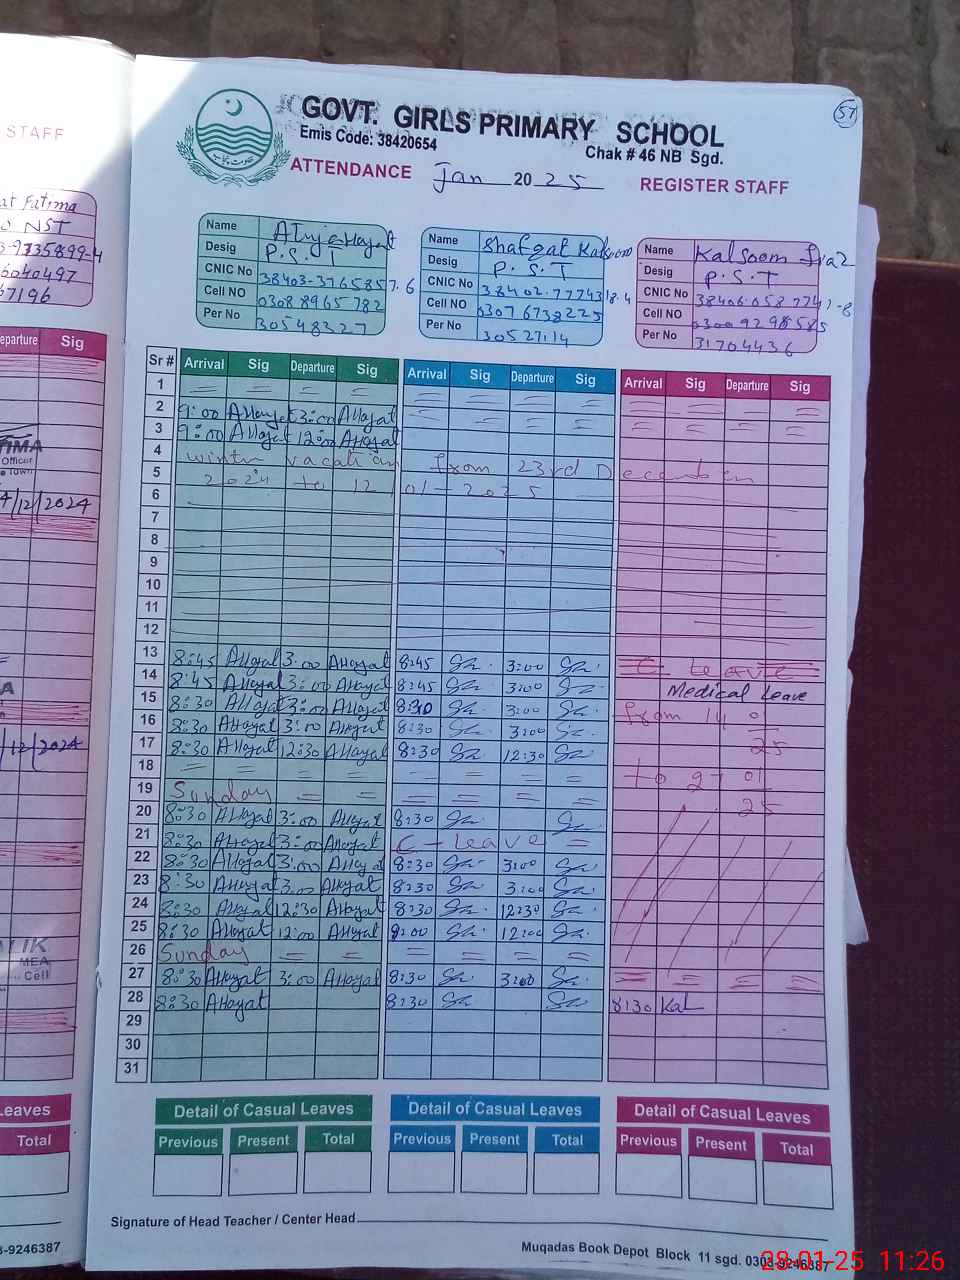 STAFF
at Fatima
NST
3-9735899-4
6040497
67196
eparture Sig
TIMA
Officer
Town
4/12/2024
/12/2024
ALIK
MEA
Cell
Leaves
Total
3-9246387
57
GOVT. GIRLS PRIMARY SCHOOL
Emis Code: 38420654
Chak # 46 NB Sgd.
ATTENDANCE Jan 2025 REGISTER STAFF
Name
Desig P.S.T
CNIC No 38403-3765857.6
Cell NO 0308 8965 782
Per No 30548327
Name Shafqat Kalsoom
Desig P.S.T
CNIC No 38402.7774318.4
Cell NO 0307 6738225
Per No 30527114
Name Kalsoom
Desig P.S.T
CNIC No
Cell NO 0300 9298585
Per No 31704436
Sr # Arrival Sig Departure Sig Arrival Sig Departure Sig Arrival Sig Departure Sig
1 = = = = = = = = = = =
2 9:00 AHayat 3:00 AHayat = = = = = = = =
3 9:00 AHayat 12:00 AHayat
4 winter vacation from 23rd December
5 2024 to 12-01-2025
6
7
8
9
10
11
12
13 8:45 AHayat 3:00 AHayat 8:45 3:00 C Leave
14 8:45 AHayat 3:00 AHayat 8:45 3:00 Medical Leave
15 8:30 AHayat 3:00 AHayat 8:30 3:00 from 14 01
16 8:30 AHayat 3:00 AHayat 8:30 3:00 25
17 8:30 AHayat 12:30 AHayat 8:30 12:30 to 27 01
18 = = = = = = = = 25
19 Sunday = = = = = =
20 8:30 AHayat 3:00 AHayat 8:30
21 8:30 AHayat 3:00 AHayat C-Leave =
22 8:30 AHayat 3:00 AHayat 8:30 3:00
23 8:30 AHayat 3:00 AHayat 8:30 3:00
24 8:30 AHayat 12:30 AHayat 8:30 12:30
25 8:30 AHayat 12:00 AHayat 12:00
26 Sunday = = = = = =
27 8:30 AHayat 3:00 AHayat 8:30 3:00 = = = =
28 8:30 AHayat 8:30 8:30 Kal
29
30
31
Detail of Casual Leaves Detail of Casual Leaves Detail of Casual Leaves
Previous Present Total Previous Present Total Previous Present Total
Signature of Head Teacher / Center Head
Muqadas Book Depot Block 11 sgd. 0303-9246387
28-01-25 11:26